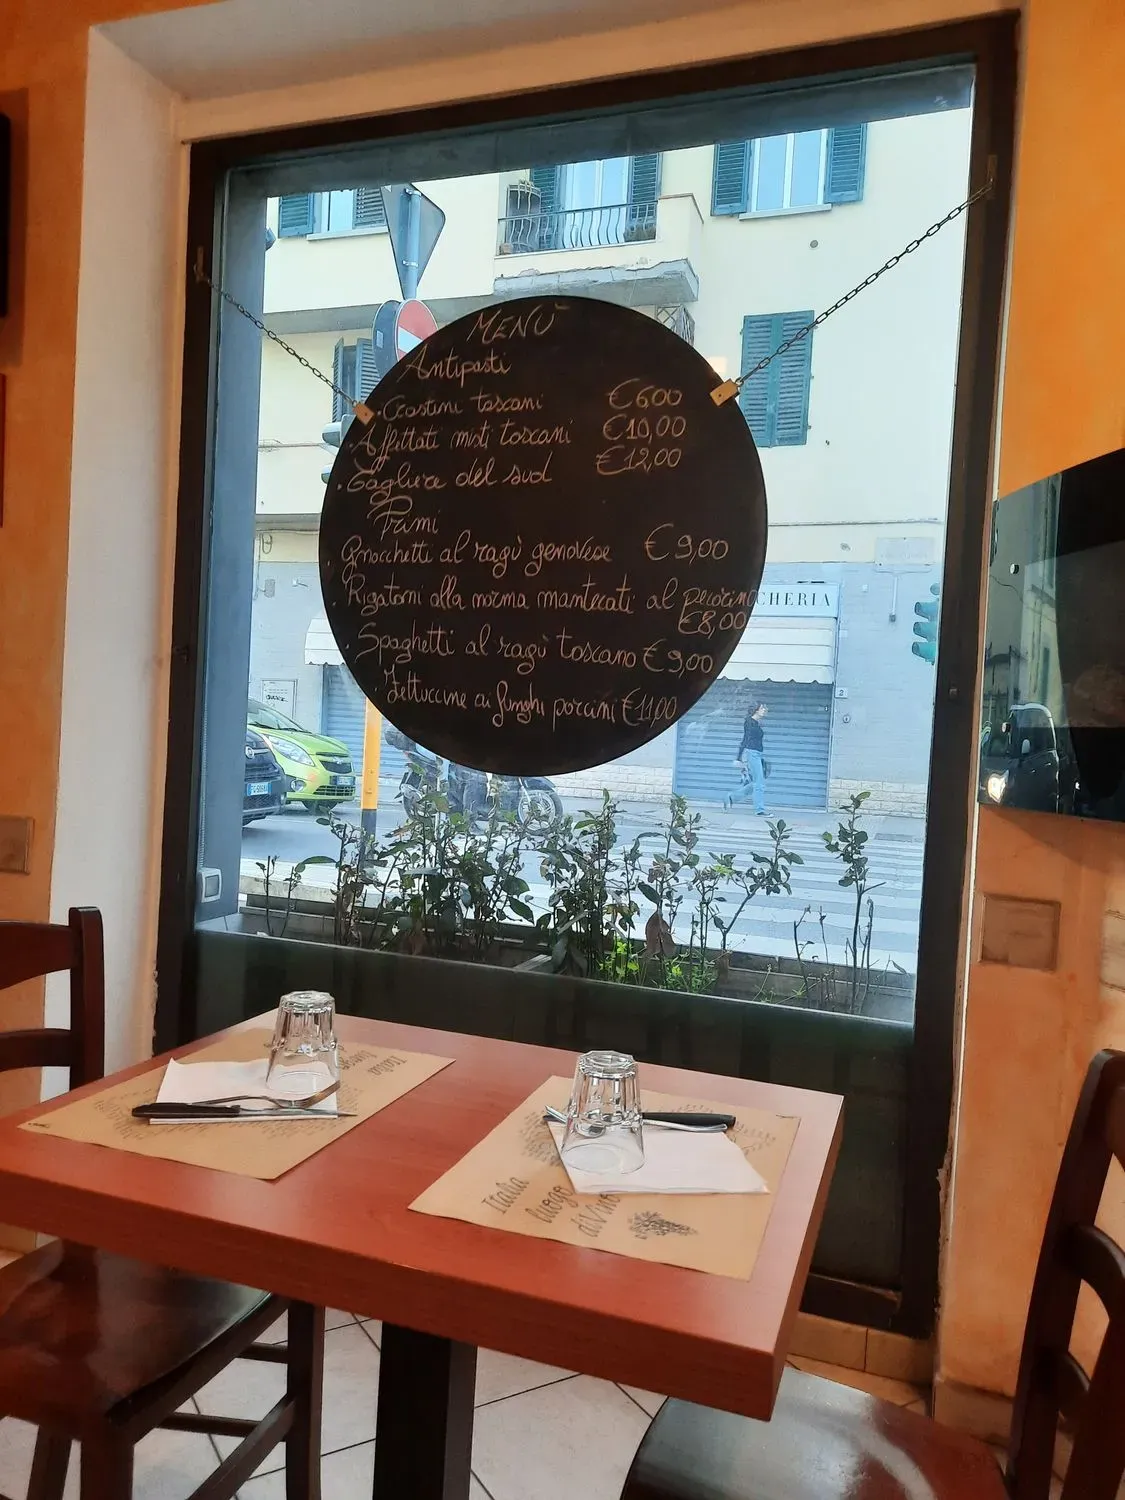 MENÙ
Antipasti
. Crostini toscani €6,00
. Affettati misti toscani €10,00
. Tagliere del sud €12,00
Primi
. Gnocchetti al ragù genovese €9,00
. Rigatoni alla norma mantecati al pecorino
€8,00
. Spaghetti al ragù toscano €9,00
. Fettuccine ai funghi porcini €11,00
CHERIA
2
Italia
luogo
diVino
Italia
luogo